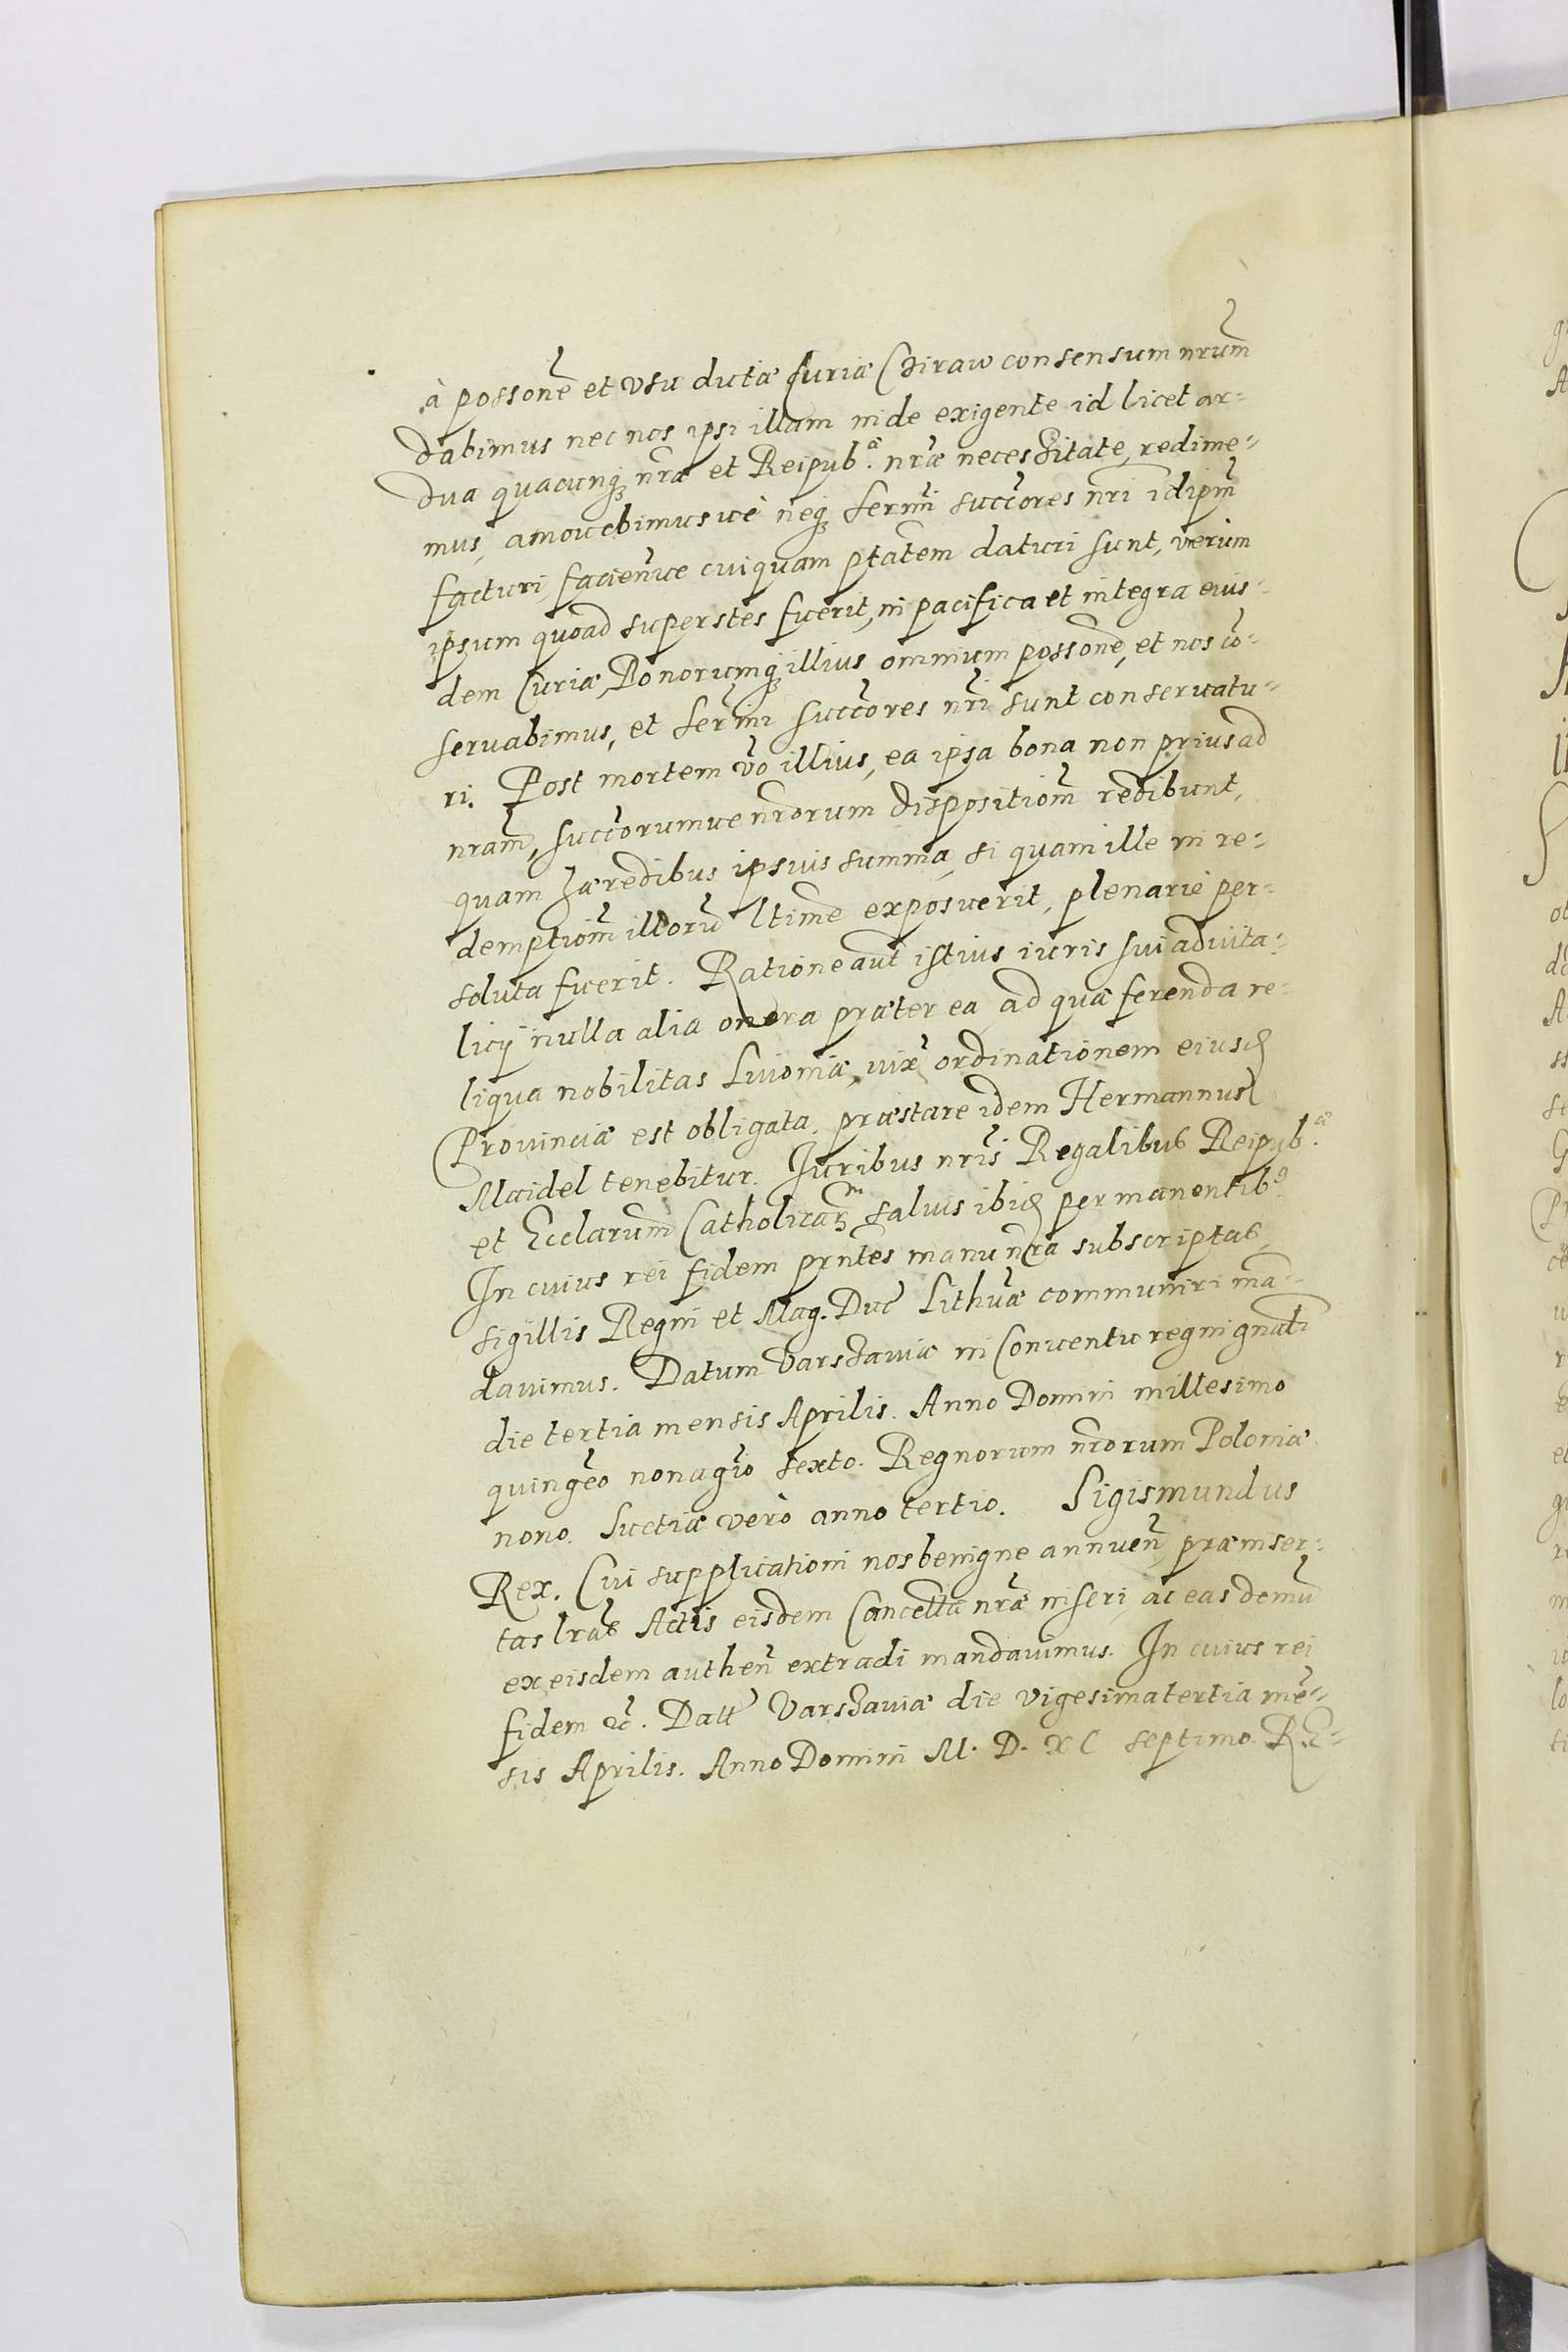 à possonẽ et vsu dictæ Curiæ Chiraw consensum nr̃um
dabimus nec nos ipsi illam inde exigente id licet ar=
dua quacunq₃ nr̃a et Reipub.ᵃᵉ nr̃æ necessitate, redime=
mus, amouebimusuè neq₃ Serm̃i succõres nr̃i idipm̃
facturi, faciendiue cuiquam ptãtem daturi sunt, verùm
ipsum quoad superstes fuerit, in pacifica et integra eius=
dem Curiæ, Bonorumq₃ illius omnium possonẽ, et nos cõ=
seruabimus, et Serm̃i succõres nr̃i sunt conseruatu=
ri. Post mortem võ illius, ea ipsa bona non prius ad
nr̃am, succõrumue nr̃orum dispositiom̃ redibunt,
quam hæredibus ipsius summa, si quam ille in re=
demptiom̃ illorũ ltimẽ exposuerit, plenariè per=
soluta fuerit. Ratione aut̃ istius iuris sui aduita=
licij nulla alia onera præter ea, ad quæ ferenda re=
liqua nobilitas Liuoniæ, iuxᵃ ordinationem eiusd̃
Prouinciæ est obligata, præstare idem Hermannus
Maidel tenebitur. Iuribus nr̃is Regalibus Reipub.ᵃᵉ
et Ecclarum̃ Catholicar̃ₘ saluis ibid̃ permanentib⁹.
In cuius rei fidem prñtes manu nr̃a subscriptas,
sigillis Regni et Mag. Duc̃ Lithuæ̃ communiri mã=
dauimus. Datum Varschauiæ in Conuentu regni gnãli
die tertia mensis Aprilis. Anno Domini millesimo
quingẽo nonagio sexto. Regnorum nr̃orum Poloniæ
nono. Suetiæ verò anno tertio. Sigismundus
Rex. Cui supplicationi nos benigne annueñ, præinser=
tas lrãs Actis eisdem Cancellæ nr̃æ inseri, ac eas demũ
ex eisdem autheñ extradi mandauimus. In cuius rei
fidem ẽc. Datt̃ Varschauiæ die vigesima tertia mẽ=
sis Aprilis. Anno Domini M. D. XC septimo. R. E=